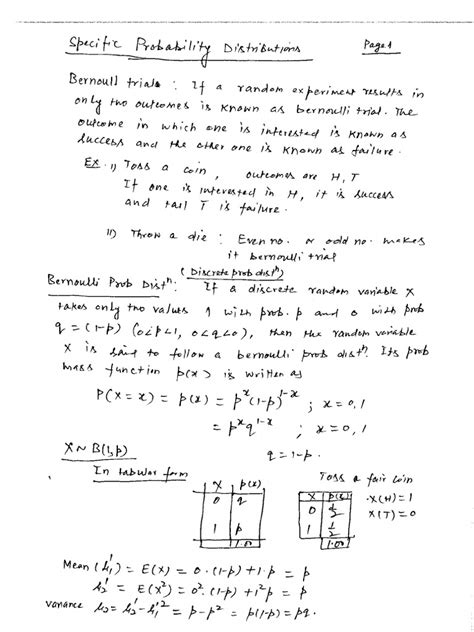 Specific Probability Distributions Page 1
Bernoull trial : If a random experiment results in
only two outcomes is known as bernoulli trial. The
outcome in which one is interested is known as
success and the other one is known as failure.
Ex. i) Toss a coin, outcomes are H, T
If one is interested in H, it is success
and tail T is failure.
ii) Throw a die : Even no. or odd no. makes
it bernoulli trial
(Discrete prob distⁿ)
Bernoulli Prob Distⁿ: If a discrete random variable X
takes only two values 1 with prob. p and 0 with prob
q = (1-p) (0<p<1, 0<q<0), then the random variable
X is said to follow a bernoulli prob distⁿ. Its prob
mass function p(x) is written as
P(X=x) = p(x) = pˣ(1-p)¹⁻ˣ ; x=0,1
= pˣq¹⁻ˣ ; x=0,1
q=1-p.
X~B(1,p)
In tabular form Toss a fair coin
X p(x) X p(x) X(H)=1
0 q 0 1/2 X(T)=0
1 p 1 1/2
1.00 1.00
Mean (μ₁') = E(X) = 0·(1-p)+1·p = p
μ₂' = E(X²) = 0²·(1-p)+1²p = p
variance μ₂ = μ₂'-μ₁'² = p-p² = p(1-p) = pq.